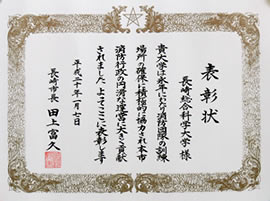 表彰状
長崎総合科学大学 様
貴大学は永年にわたり消防団隊の訓練
場所の確保に積極的に協力され本市
消防行政の円滑な運営に大きく貢献
されました よってここに表彰します
平成二十年一月七日
長崎市長 田上富久